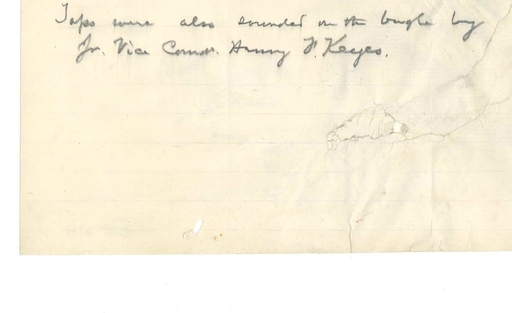 Taps were also sounded on the bugle by
Jr. Vice Comdr. Henry F. Keyes.